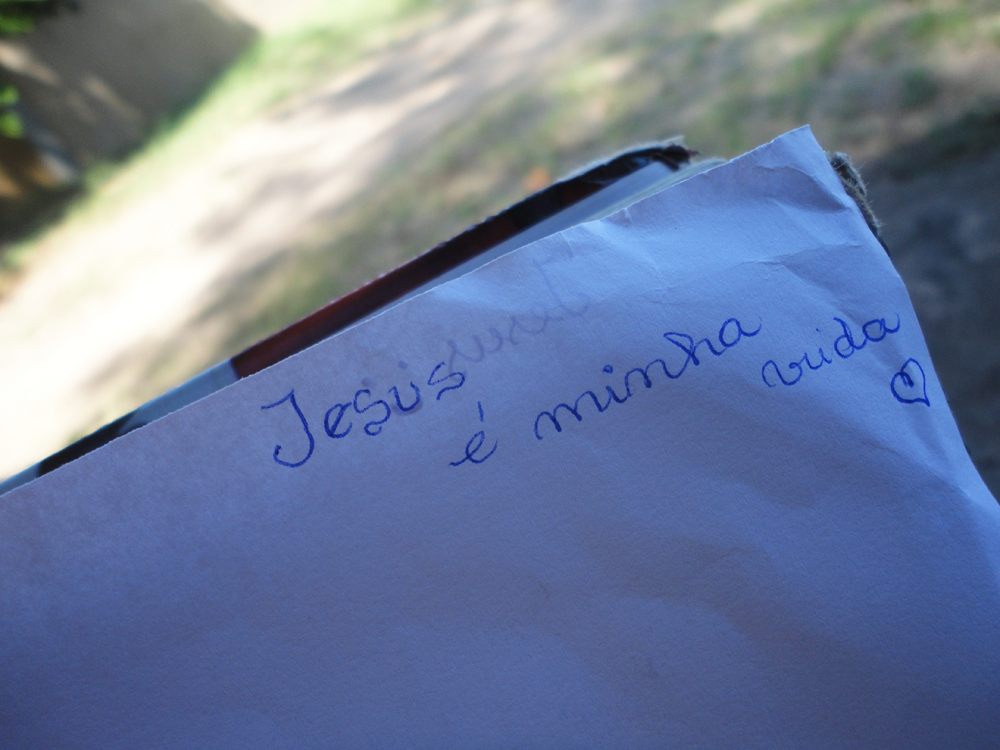 Jesus
é minha
vida